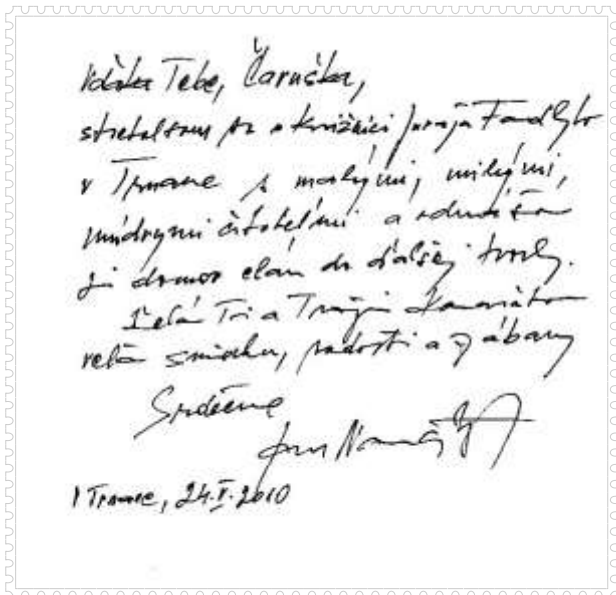 Vďaka Tebe, Čaruška,
stretol som sa v knižnici Juraja Fándlyho
v Trnave s malými, milými,
múdrymi čitateľmi a odnášam
si domov elán do ďalšej tvorby.
Želám Ti a Tvojim kamarátom
veľa smiechu, radosti a zábavy
Srdečne
V Trnave, 24.V.2010